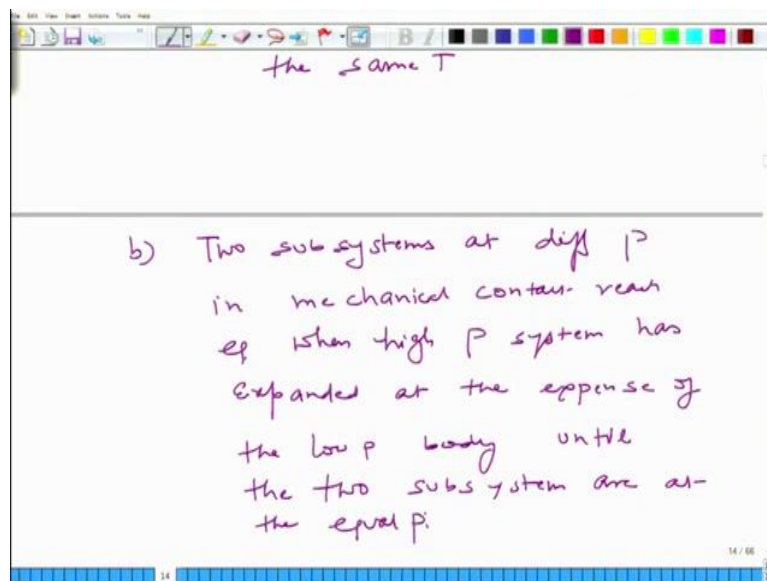 File Edit View Insert Actions Tools Help
B I
the same T
b) Two subsystems at diff P
in mechanical contact reach
eq when high P system has
Expanded at the expense of
the low P body until
the two subsystem are at
the equal P.
14 / 66
14